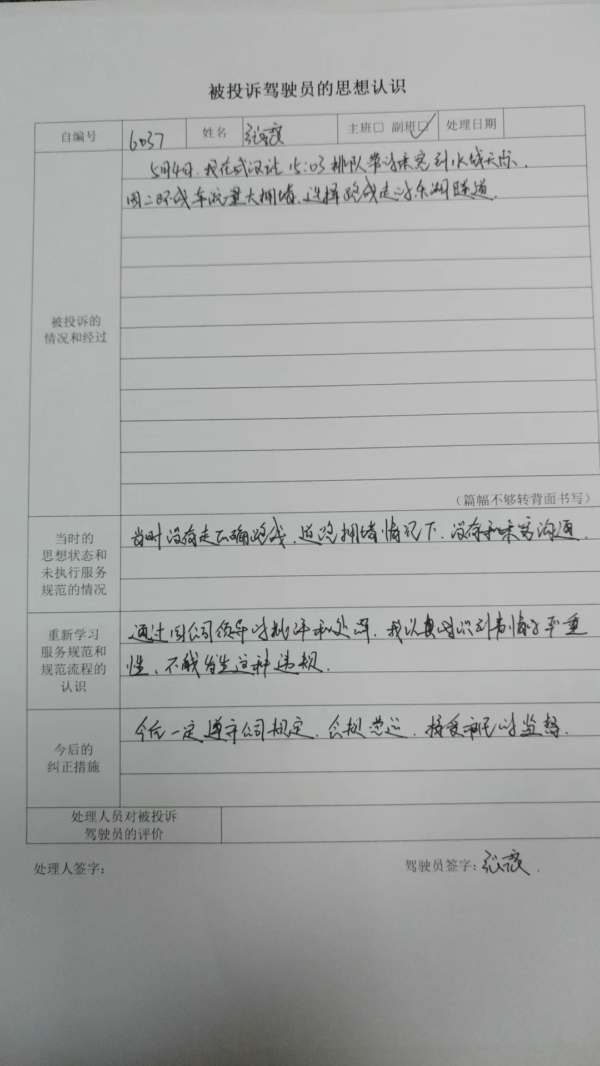 被投诉驾驶员的思想认识
自编号 6037 姓名 张霞 主班□ 副班□ 处理日期
5月4日,我在武汉站15:03排队带的乘客到水域天际.
因二环线车流量大拥堵,选择路线走的东湖隧道.
被投诉的
情况和经过
(篇幅不够转背面书写)
当时的
思想状态和
未执行服务
规范的情况
当时没有走正确路线,道路拥堵情况下,没有和乘客沟通.
重新学习
服务规范和
规范流程的
认识
通过因公司领导的批评和处理,我认真时识到事情的严重
性,不能发生这种违规.
今后的
纠正措施
今后一定遵守公司规定,合规营运,接受市民的监督.
处理人员对被投诉
驾驶员的评价
处理人签字: 驾驶员签字:张霞.